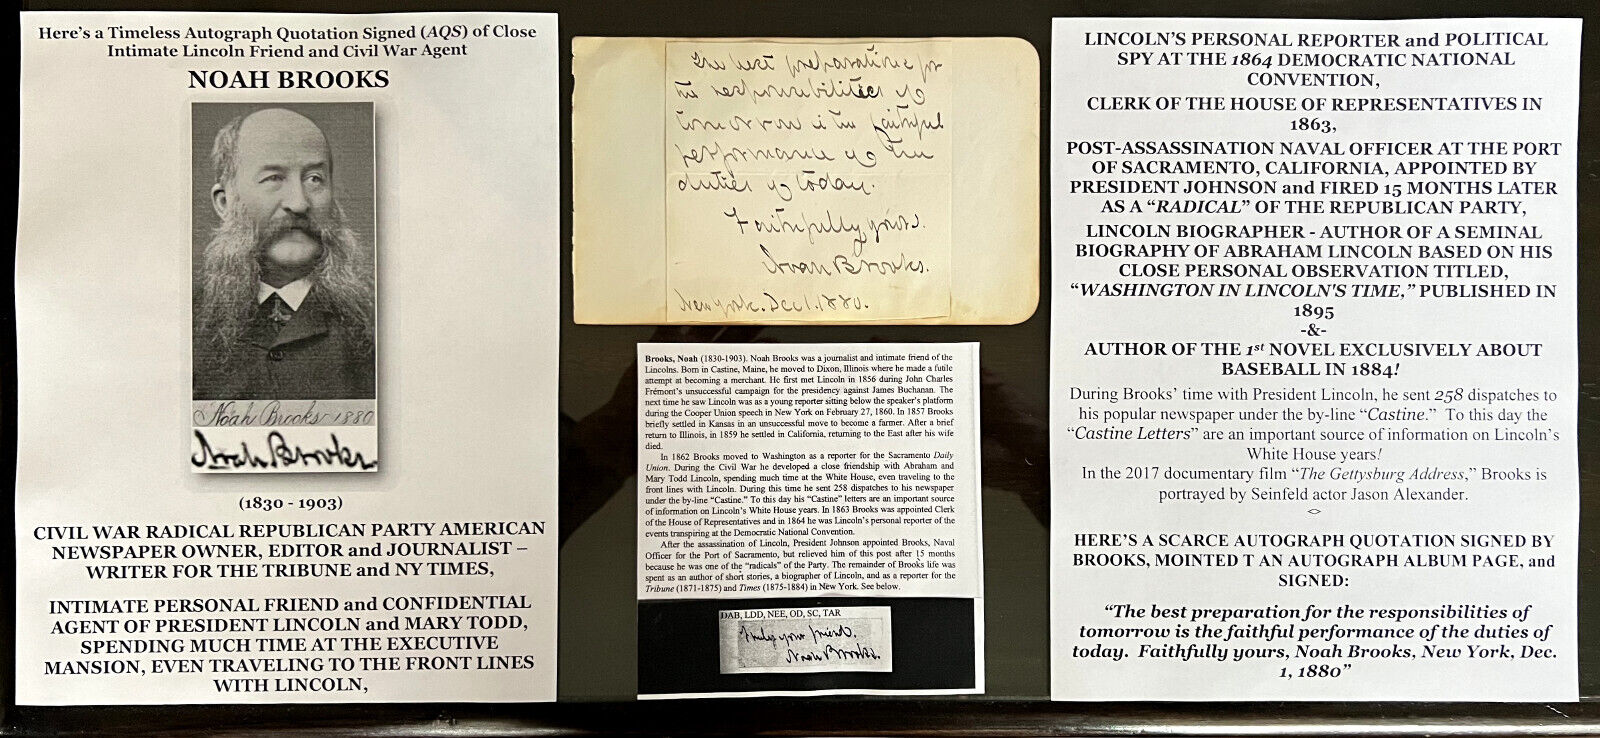 Here's a Timeless Autograph Quotation Signed (AQS) of Close
Intimate Lincoln Friend and Civil War Agent
NOAH BROOKS
Noah Brooks 1880
Noah Brooks.
(1830 - 1903)
CIVIL WAR RADICAL REPUBLICAN PARTY AMERICAN
NEWSPAPER OWNER, EDITOR and JOURNALIST –
WRITER FOR THE TRIBUNE and NY TIMES,
INTIMATE PERSONAL FRIEND and CONFIDENTIAL
AGENT OF PRESIDENT LINCOLN and MARY TODD,
SPENDING MUCH TIME AT THE EXECUTIVE
MANSION, EVEN TRAVELING TO THE FRONT LINES
WITH LINCOLN,
The best preparation for
the responsibilities of
tomorrow is the faithful
performance of the
duties of today.
Faithfully yours.
Noah Brooks.
New York. Dec 1. 1880.
Brooks, Noah (1830-1903). Noah Brooks was a journalist and intimate friend of the
Lincolns. Born in Castine, Maine, he moved to Dixon, Illinois where he made a futile
attempt at becoming a merchant. He first met Lincoln in 1856 during John Charles
Frémont's unsuccessful campaign for the presidency against James Buchanan. The
next time he saw Lincoln was as a young reporter sitting below the speaker's platform
during the Cooper Union speech in New York on February 27, 1860. In 1857 Brooks
briefly settled in Kansas in an unsuccessful move to become a farmer. After a brief
return to Illinois, in 1859 he settled in California, returning to the East after his wife
died.
In 1862 Brooks moved to Washington as a reporter for the Sacramento Daily
Union. During the Civil War he developed a close friendship with Abraham and
Mary Todd Lincoln, spending much time at the White House, even traveling to the
front lines with Lincoln. During this time he sent 258 dispatches to his newspaper
under the by-line "Castine." To this day his "Castine" letters are an important source
of information on Lincoln's White House years. In 1863 Brooks was appointed Clerk
of the House of Representatives and in 1864 he was Lincoln's personal reporter of the
events transpiring at the Democratic National Convention.
After the assassination of Lincoln, President Johnson appointed Brooks, Naval
Officer for the Port of Sacramento, but relieved him of this post after 15 months
because he was one of the "radicals" of the Party. The remainder of Brooks life was
spent as an author of short stories, a biographer of Lincoln, and as a reporter for the
Tribune (1871-1875) and Times (1875-1884) in New York. See below.
DAB, LDD, NEE, OD, SC, TAR
Truly your friend.
Noah Brooks.
LINCOLN'S PERSONAL REPORTER and POLITICAL
SPY AT THE 1864 DEMOCRATIC NATIONAL
CONVENTION,
CLERK OF THE HOUSE OF REPRESENTATIVES IN
1863,
POST-ASSASSINATION NAVAL OFFICER AT THE PORT
OF SACRAMENTO, CALIFORNIA, APPOINTED BY
PRESIDENT JOHNSON and FIRED 15 MONTHS LATER
AS A "RADICAL" OF THE REPUBLICAN PARTY,
LINCOLN BIOGRAPHER - AUTHOR OF A SEMINAL
BIOGRAPHY OF ABRAHAM LINCOLN BASED ON HIS
CLOSE PERSONAL OBSERVATION TITLED,
"WASHINGTON IN LINCOLN'S TIME," PUBLISHED IN
1895
-&-
AUTHOR OF THE 1st NOVEL EXCLUSIVELY ABOUT
BASEBALL IN 1884!
During Brooks' time with President Lincoln, he sent 258 dispatches to
his popular newspaper under the by-line "Castine." To this day the
"Castine Letters" are an important source of information on Lincoln's
White House years!
In the 2017 documentary film "The Gettysburg Address," Brooks is
portrayed by Seinfeld actor Jason Alexander.
<>
HERE'S A SCARCE AUTOGRAPH QUOTATION SIGNED BY
BROOKS, MOINTED T AN AUTOGRAPH ALBUM PAGE, and
SIGNED:
"The best preparation for the responsibilities of
tomorrow is the faithful performance of the duties of
today. Faithfully yours, Noah Brooks, New York, Dec.
1, 1880"